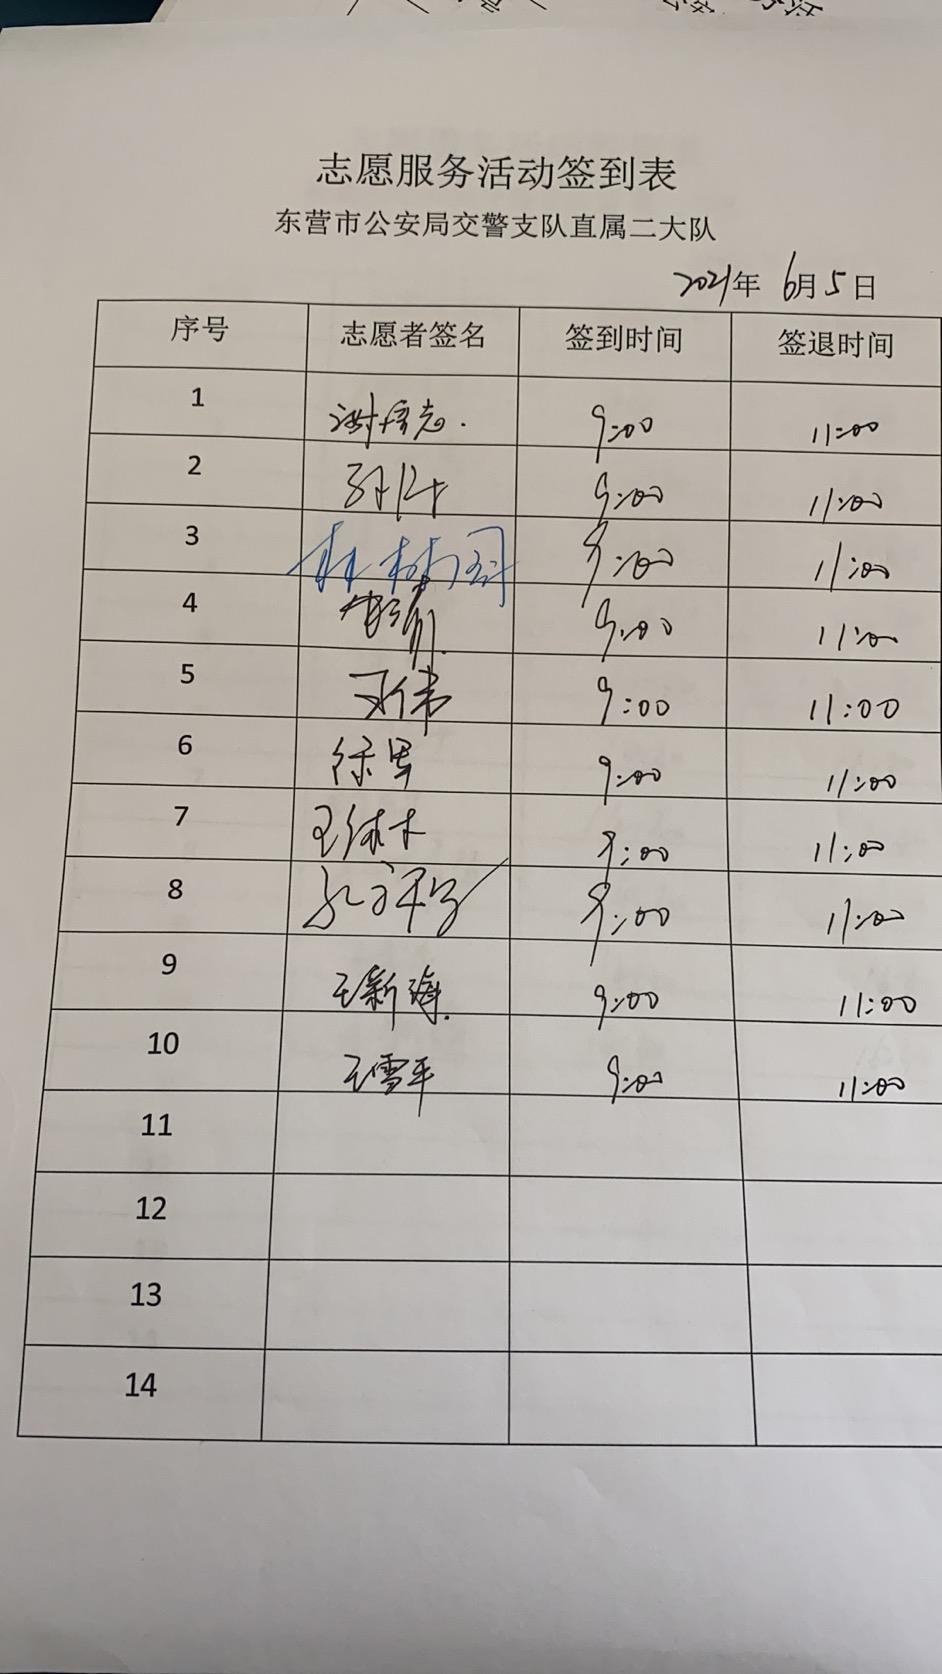 志愿服务活动签到表
东营市公安局交警支队直属二大队
2021年 6月5日
序号 志愿者签名 签到时间 签退时间
1 9:00 11:00
2 9:00 11:00
3 9:00 11:00
4 9:00 11:00
5 9:00 11:00
6 9:00 11:00
7 9:00 11:00
8 9:00 11:00
9 王新海 9:00 11:00
10 王雪平 9:00 11:00
11
12
13
14